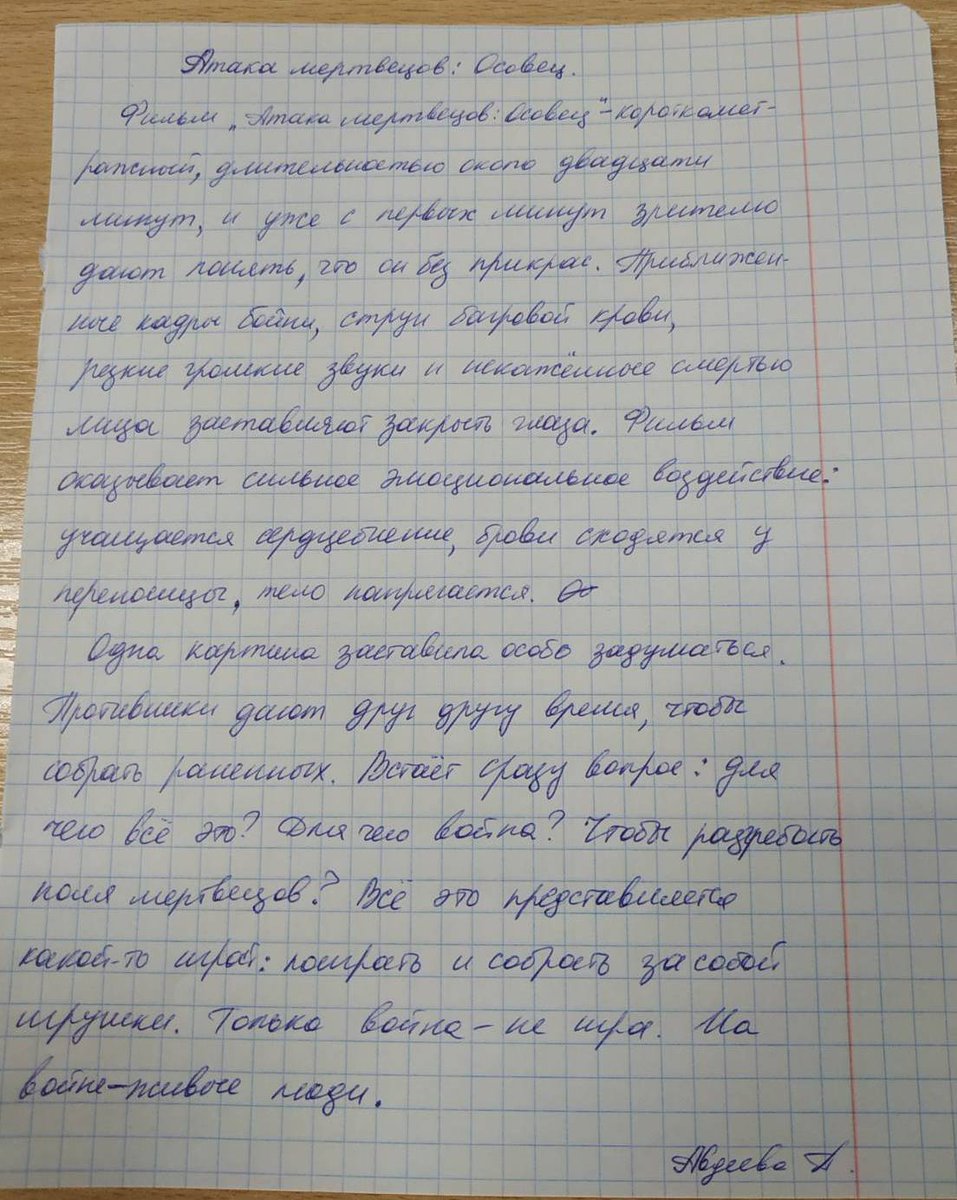 Атака мертвецов: Осовец.
Фильм "Атака мертвецов: Осовец" - короткомет-
ражный, длительностью около двадцати
минут, и уже с первых минут зрителю
дают понять, что он без прикрас. Приближен-
ные кадры бойни, струи багровой крови,
резкие громкие звуки и искажённые смертью
лица заставляют закрыть глаза. Фильм
оказывает сильное эмоциональное воздействие:
учащается сердцебиение, брови сходятся у
переносицы, тело напрягается.
Одна картина заставила особо задуматься.
Противники дают друг другу время, чтобы
собрать раненных. Встаёт сразу вопрос: для
чего всё это? Для чего война? Чтобы разгребать
поля мертвецов? Всё это представляется
какой-то игрой: поиграть и собрать за собой
игрушки. Только война - не игра. На
войне - живые люди.
Авдеева А.